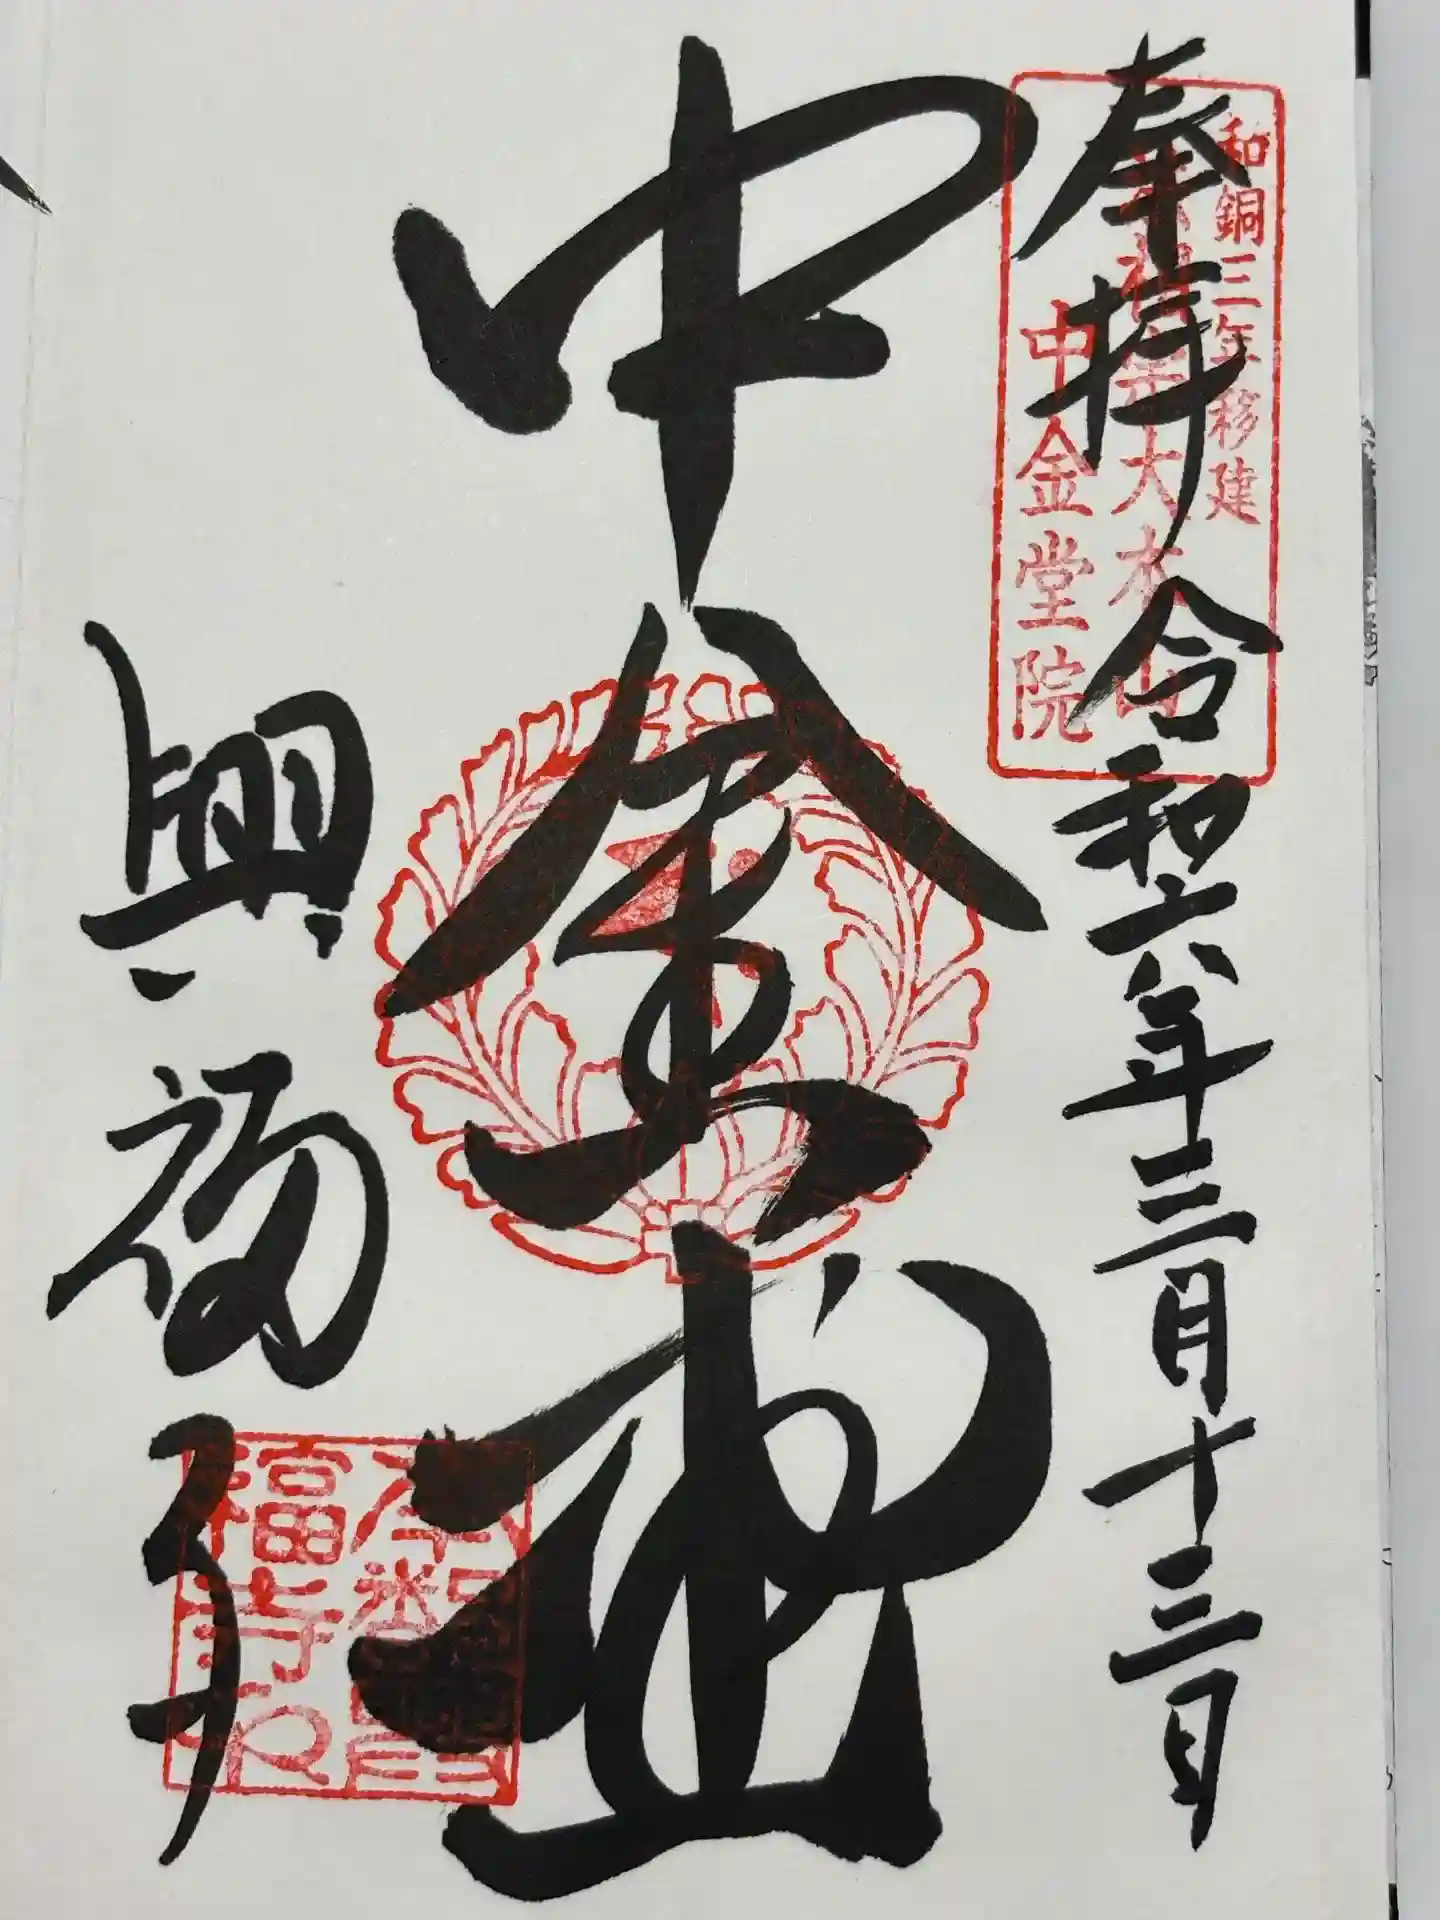 奉拝 令和六年三月十三日
和銅三年移建
法相宗大本山
中金堂院
中金堂
興福寺
福寺印